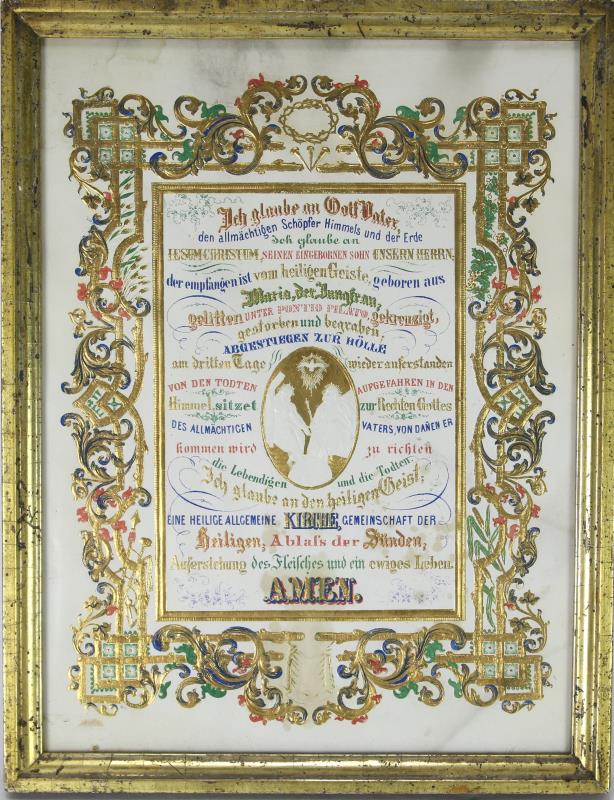 Ich glaube an Gott Vater,
den allmächtigen Schöpfer Himmels und der Erde
Ich glaube an
IESUM CHRISTUM, SEINEN EINGEBORNEN SOHN UNSERN HERRN,
der empfangen ist vom heiligen Geiste, geboren aus
Maria, der Jungfrau,
gelitten UNTER PONTIO PILATO, gekreuzigt,
gestorben und begraben;
ABGESTIEGEN ZUR HÖLLE
am dritten Tage wieder auferstanden
VON DEN TODTEN AUFGEFAHREN IN DEN
Himmel, sitzet zur Rechten Gottes
DES ALLMÄCHTIGEN VATERS, VON DAÑEN ER
kommen wird zu richten
die Lebendigen und die Todten.
Ich glaube an den heiligen Geist;
EINE HEILIGE ALLGEMEINE KIRCHE, GEMEINSCHAFT DER
Heiligen, Ablaſs der Sünden,
Auferstehung des Fleisches und ein ewiges Leben.
AMEN.